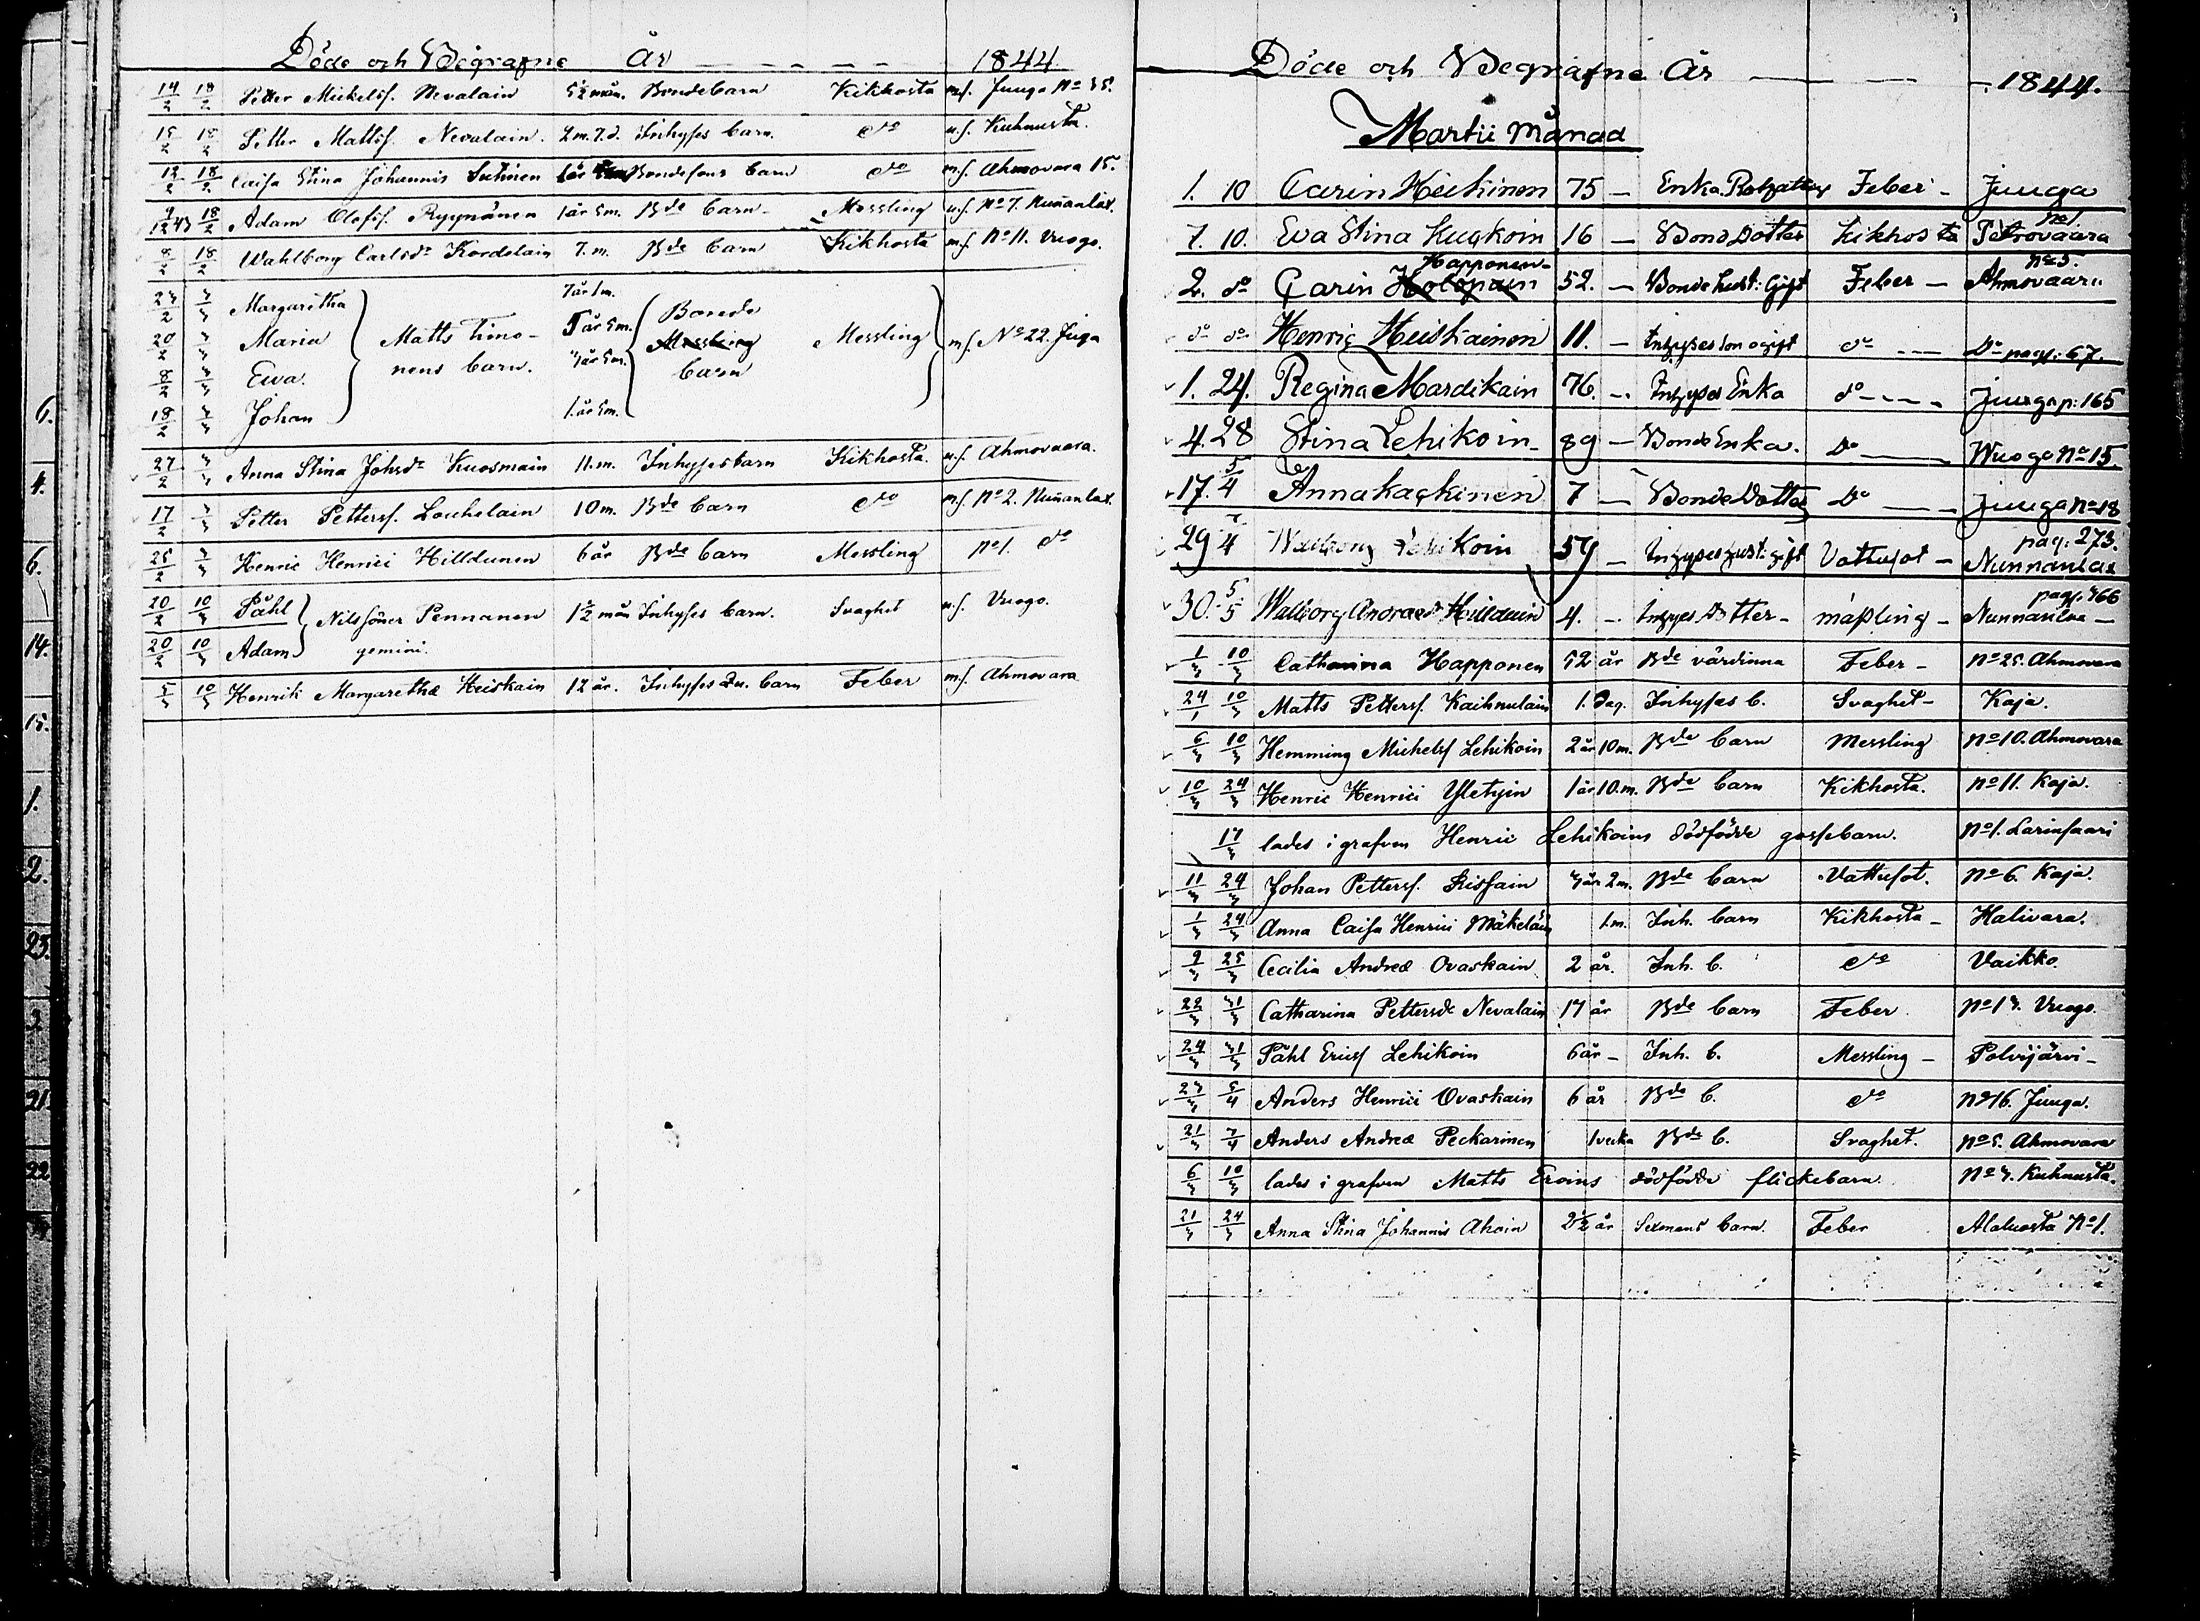 6.
4.
6.
14.
15.
1.
2.
23.
3
21.
22
Döde och Begrafne År 1844
14/2 18/2 Petter Mickelsf. Nevalain 5½ mån. Bondebarn Kikhosta mf. Juuga No 35.
15/2 18/2 Petter Mattsf. Nevalain. 2 m. 7. d. Inhyses barn. do u.f. Kuhnusta.
12/2 18/2 Caisa Stina Johannis Sutinen 1 år Bondesons barn do mf. Ahmovara 15.
9/12 43 18/2 Adam Olofsf. Ryynänen 1 år 5m. Bde barn Messling u.f. No 7. Nunanlax.
8/2 18/2 Wahlborg Carlsdr Kordelain 7. m. Bde barn Kikhosta mf. No 11. Vuogo.
23/2 3/3 Margaretha 7 år 1 m.
20/2 3/3 Maria Matts Timo- 5 år 5 m. Bonde Messling Messling mf. No 22. Juga
8/2 3/3 Ewa. nens barn. 3 år 5 m. barn
18/2 3/3 Johan 1. år 5 m.
27/2 3/3 Anna Stina Johsdr Kuosmain 11. m. Inhysesbarn Kikhosta. u.f. Ahmovaara.
17/2 3/3 Petter Pettersf. Louhelain 10 m. Bde barn do mf. No 2. Nunanlax.
25/2 3/3 Henric Henrici Hilldunen 6 år Bde barn Messling No 1. do
20/2 10/3 Påhl Nilssöner Pennanen 1½ mån Inhyses barn. Svaghet u.f. Vuogo.
20/2 10/3 Adam gemini.
5/3 10/3 Henrik Margarethæ Heiskain 12 år. Inhyses barn Feber mf. Ahmovara
Döde och Begrafne År 1844.
Martii Månad
1. 10 Carin Heikinen 75 — Enka Feber — Juuga
7. 10. Eva Stina Kuckoin 16 — Bond Dotter Kikhosta No 1 Petrovaara
2. do Carin Holopain Happonen 52. — Bonde hust: Gift Feber — No 5. Ahmovaara
do do Henric Heiskainen 11. — Inhyses son ogift do — Do pag: 67.
1. 24. Regina Mardikain 76. — Inhyses Enka do — Juuga p: 165
4. 28 Stina Lehikoin 89 — Bonde Enka. Do — Wuogo No 15.
17. 5/4 Anna Kackinen 7 — Bonde Dotter Do — Juuga No 18
29 7/4 Walborg Lehikoin 59 — Inhyses hust: gift Vattusot — pag: 273. Nunnanlax
30. 5/5 Walborg Andraedr Hilldain 4. — Inhyses Dotter — mäßling — pag. 466 Nunnanlax —
1/3 10/3 Catharina Happonen 52 år Bde värdinna Feber — No 25. Ahmovara
24/1 10/3 Matts Pettersf. Kaihnulain 1. Dag. Inhyses b. Svaghet — Kaja.
6/3 10/3 Hemming Michelsf Lehikoin 2 år 10 m. Bde barn Messling No 10. Ahmovara
10/3 24/3 Henric Henrici Yletyin 1 år 10. m. Bde barn Kikhosta. No 11. Kaja.
17/3 lades i grafven Henric Lehikoins dödfödde gossebarn. No 1. Larinsaari
11/3 24/3 Johan Pettersf. Kissain 3 år 2 m. Bde barn Vattusot. No 6. Kaja.
1/3 24/3 Anna Caisa Henrici Mäkeläin 1. m. Inh. barn Kikhosta — Halivara.
9/3 25/3 Cecilia Andreæ Ovaskain 2 år. Inh. b. do Vaikko.
22/3 31/3 Catharina Pettersdr Nevalain 17 år Bde barn Feber No 13. Vuogo.
24/3 31/3 Påhl Ericsf Lehikoin 6 år — Inh. b. Messling — Polvijärvi —
23/3 5/4 Anders Henrici Ovaskain 6 år Bde b. do No 16. Juuga.
21/3 7/4 Anders Andreæ Peckarinen 1 vecka Bde b. Svaghet. No 5. Ahmovara
6/3 10/3 lades i grafven Matts Eroins dödfödde flickebarn No 3. Kuhnusta.
21/3 24/3 Anna Stina Johannis Ahoin 2½ år Sexmans barn. Feber Alaluosta No 1.